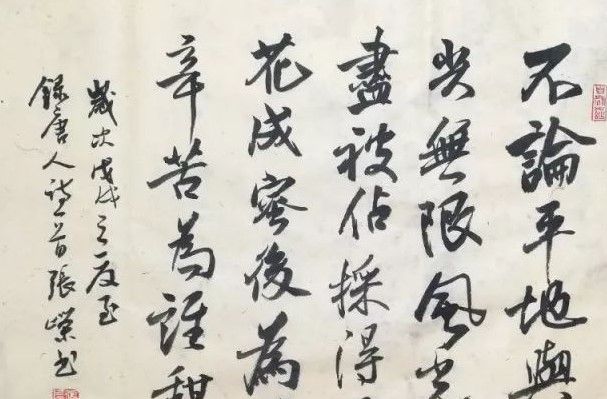 不論平地與
尖無限風光
盡被佔採得
花成蜜後為
辛苦為誰甜
歲次戊戌之夏至
錄唐人詩一首張嶸书